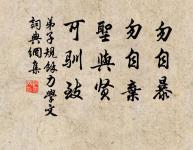 勿自暴
勿自棄
聖與賢
可馴致
弟子規餘力學文
詞典網集